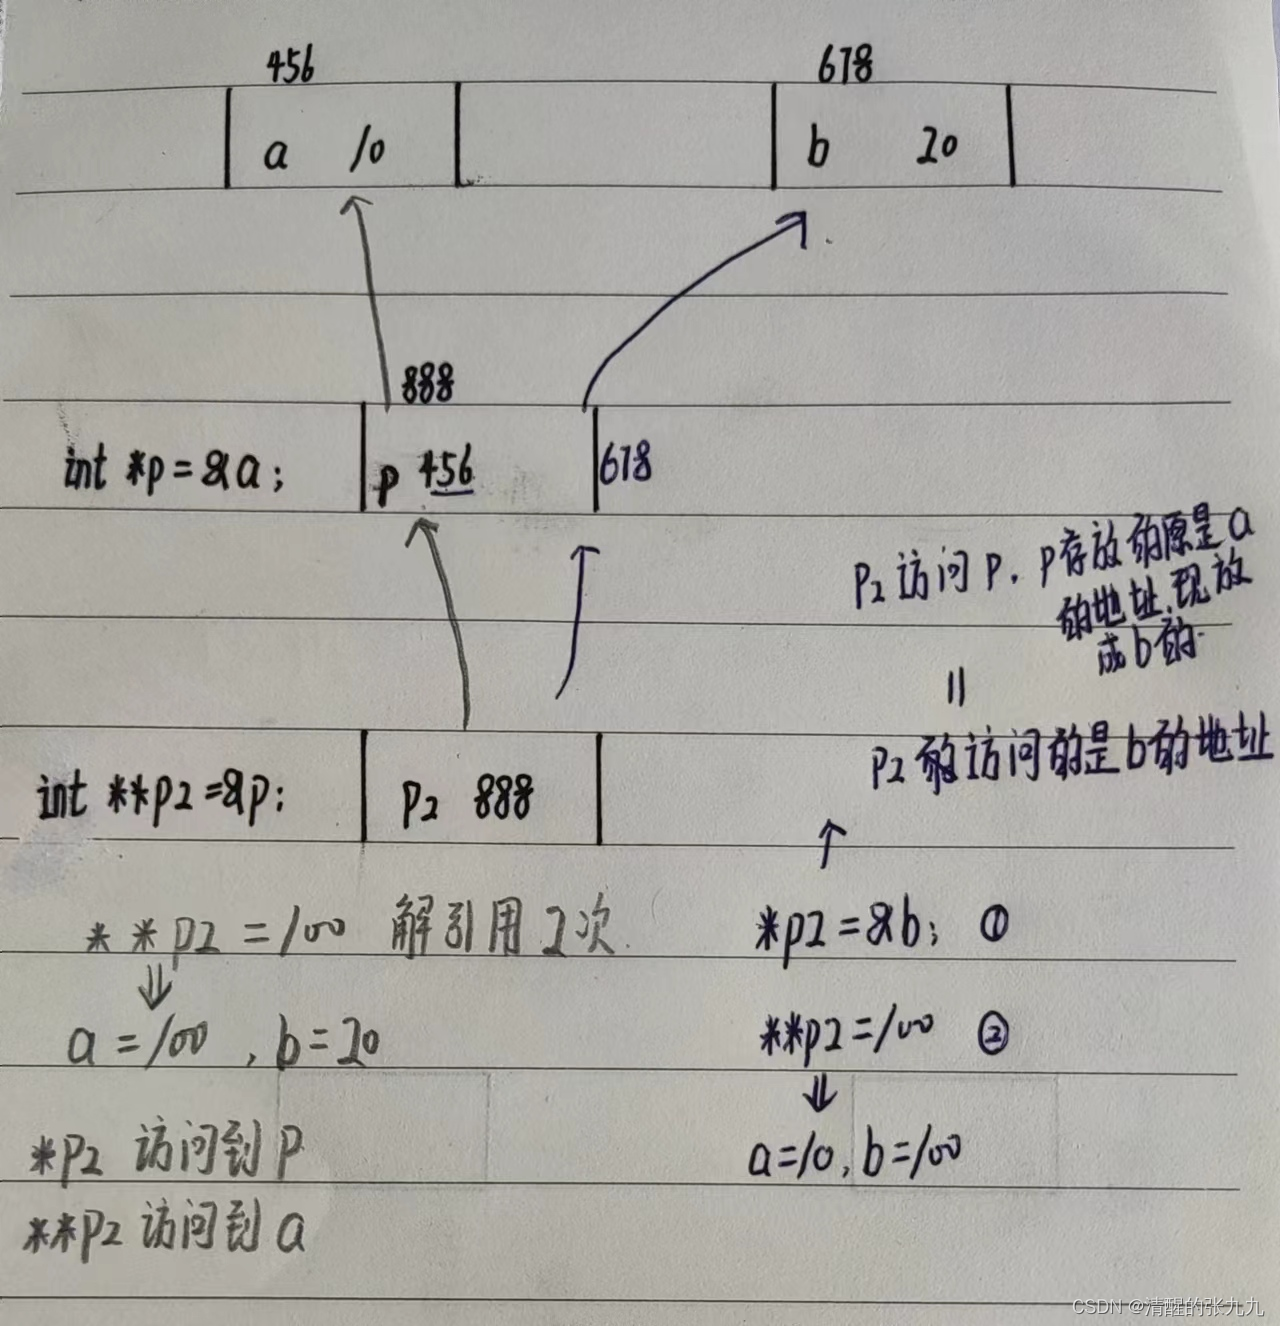 456
678
a 10
b 20
888
int *p=&a;
p 456
678
P2 访问 P. P存放的原是a
的地址.现放
成b的.
=
P2 访问的是b的地址
int **p2=&p;
P2 888
**p2=100 解引用2次.
*p2=&b; ①
⇓
a=100 , b=20
**p2=100 ②
⇓
*P2 访问到 P
a=10, b=100
**P2 访问到 a
CSDN @清醒的张九九